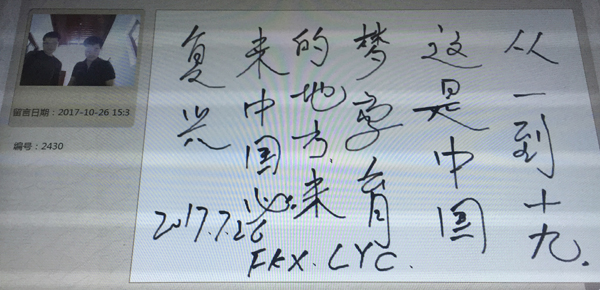 留言日期：2017-10-26 15:3
编号：2430
从一到十九.
这是中国
梦孕育
的地方.未
来中国必
复兴
2017.7.26
FKX.LYC.